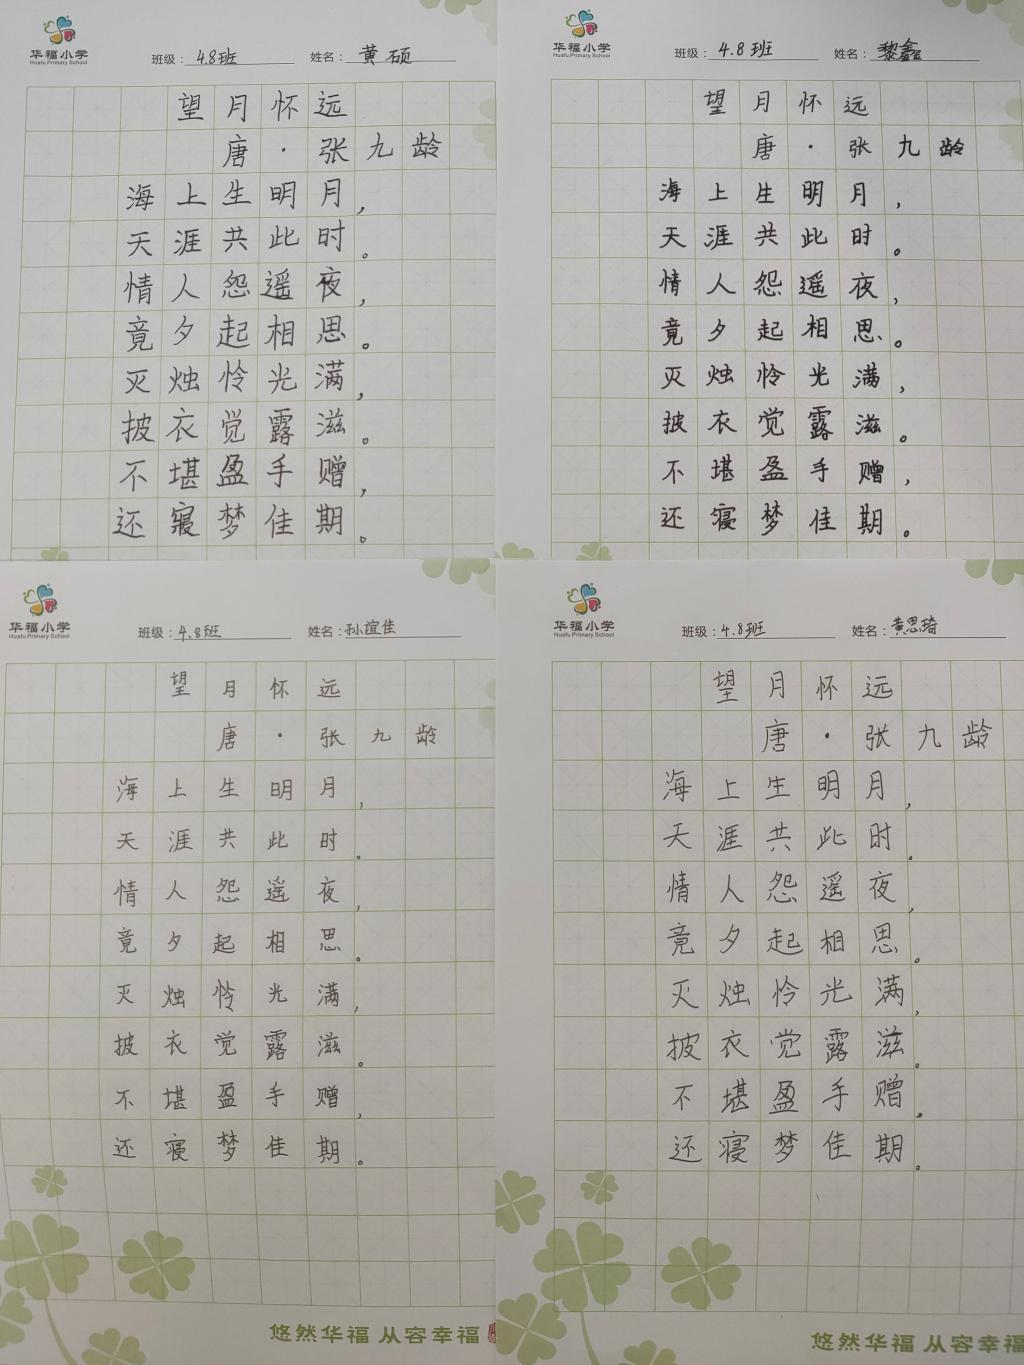 华福小学
Huafu Primary School
班级：4.8班 姓名：黄硕
望月怀远
唐·张九龄
海上生明月，
天涯共此时。
情人怨遥夜，
竟夕起相思。
灭烛怜光满，
披衣觉露滋。
不堪盈手赠，
还寝梦佳期。
华福小学
Huafu Primary School
班级：4.8班 姓名：黎鑫
望月怀远
唐·张九龄
海上生明月，
天涯共此时。
情人怨遥夜，
竟夕起相思。
灭烛怜光满，
披衣觉露滋。
不堪盈手赠，
还寝梦佳期。
华福小学
Huafu Primary School
班级：4.8班 姓名：孙谊佳
望月怀远
唐·张九龄
海上生明月，
天涯共此时。
情人怨遥夜，
竟夕起相思。
灭烛怜光满，
披衣觉露滋。
不堪盈手赠，
还寝梦佳期。
悠然华福 从容幸福
华福小学
Huafu Primary School
班级：4.8班 姓名：黄思琦
望月怀远
唐·张九龄
海上生明月，
天涯共此时。
情人怨遥夜，
竟夕起相思。
灭烛怜光满，
披衣觉露滋。
不堪盈手赠。
还寝梦佳期。
悠然华福 从容幸福